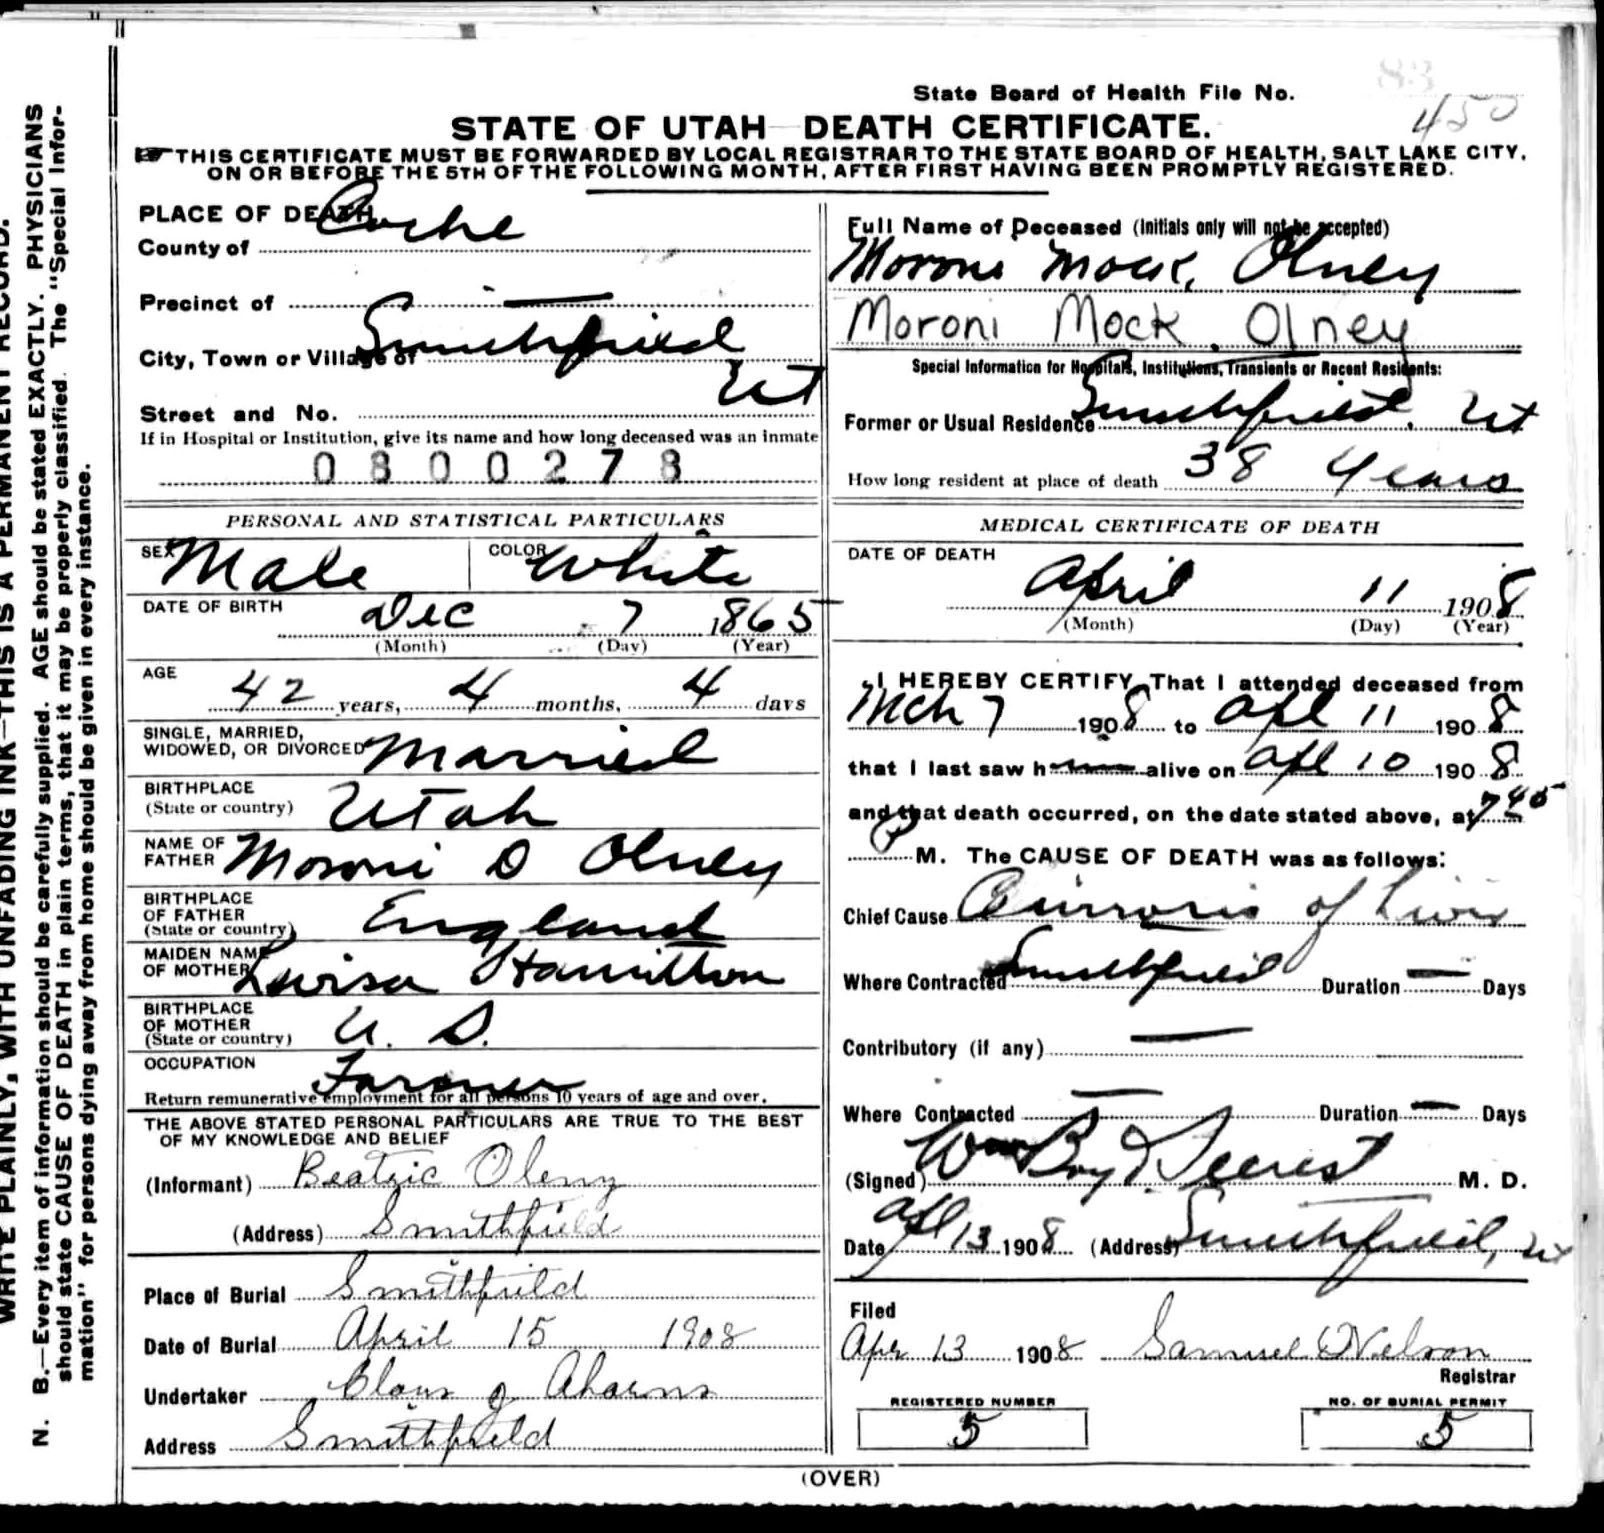 WRITE PLAINLY, WITH UNFADING INK—THIS IS A PERMANENT RECORD.
N. B.—Every item of information should be carefully supplied. AGE should be stated EXACTLY. PHYSICIANS
should state CAUSE OF DEATH in plain terms, that it may be properly classified. The "Special Infor-
mation" for persons dying away from home should be given in every instance.
83
State Board of Health File No.
450
STATE OF UTAH—DEATH CERTIFICATE.
☞ THIS CERTIFICATE MUST BE FORWARDED BY LOCAL REGISTRAR TO THE STATE BOARD OF HEALTH, SALT LAKE CITY,
ON OR BEFORE THE 5TH OF THE FOLLOWING MONTH, AFTER FIRST HAVING BEEN PROMPTLY REGISTERED.
PLACE OF DEATH
County of Cache
Precinct of —
City, Town or Village of Smithfield
Ut
Street and No.
If in Hospital or Institution, give its name and how long deceased was an inmate
0800278
PERSONAL AND STATISTICAL PARTICULARS
SEX Male COLOR White
DATE OF BIRTH
Dec 7 1865
(Month) (Day) (Year)
AGE
42 years, 4 months, 4 days
SINGLE, MARRIED,
WIDOWED, OR DIVORCED Married
BIRTHPLACE
(State or country) Utah
NAME OF
FATHER Moroni D Olney
BIRTHPLACE
OF FATHER
(State or country) England
MAIDEN NAME
OF MOTHER Luisa Hamilton
BIRTHPLACE
OF MOTHER
(State or country) U. S.
OCCUPATION
Farmer
Return remunerative employment for all persons 10 years of age and over.
THE ABOVE STATED PERSONAL PARTICULARS ARE TRUE TO THE BEST
OF MY KNOWLEDGE AND BELIEF
(Informant) Beatric Oleny
(Address) Smithfield
Place of Burial Smithfield
Date of Burial April 15 1908
Undertaker Claus J Aharns
Address Smithfield
Full Name of Deceased (Initials only will not be accepted)
Moroni Mock, Olney
Moroni Mock. Olney
Special Information for Hospitals, Institutions, Transients or Recent Residents:
Former or Usual Residence Smithfield. Ut
How long resident at place of death 38 Years
MEDICAL CERTIFICATE OF DEATH
DATE OF DEATH
April 11 1908
(Month) (Day) (Year)
I HEREBY CERTIFY, That I attended deceased from
Mch 7 1908 to Apl 11 1908
that I last saw him alive on Apl 10 1908
and that death occurred, on the date stated above, at 7 45
P M. The CAUSE OF DEATH was as follows:
Chief Cause Cirrosis of Liver
Where Contracted Smithfield Duration — Days
Contributory (if any) —
Where Contracted — Duration — Days
(Signed) Wm Boyd Seerest M. D.
Date Apl 13 1908 (Address) Smithfield, Ut
Filed
Apr 13 1908 Samuel Nelson
Registrar
REGISTERED NUMBER
5
NO. OF BURIAL PERMIT
5
(OVER)